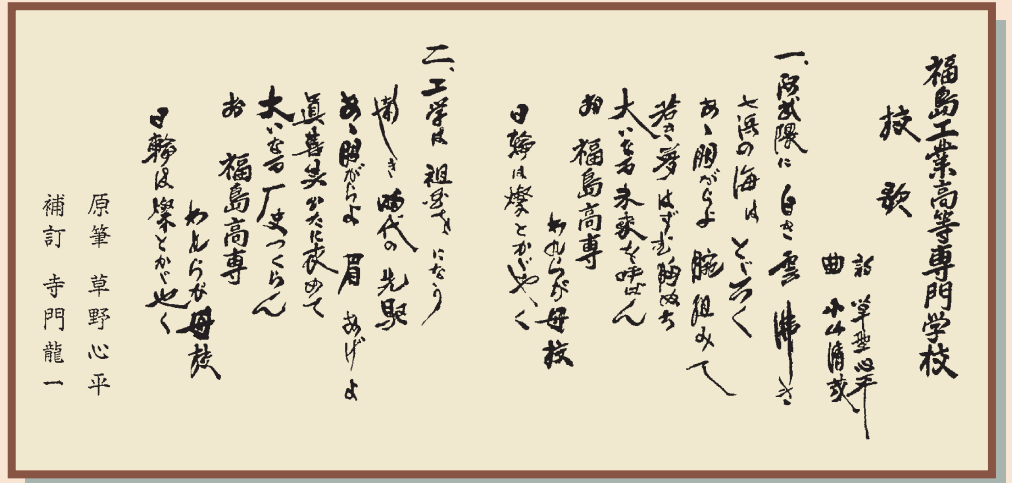 福島工業高等専門学校
校歌
詩 草野心平
曲 小山清茂
一、阿武隈に 白き雲 沸き
七浜の海は とどろく
あゝ朋がらよ 腕組みて
若き夢 はずむ胸ぬち
大いなる未来を呼ばん
おゝ 福島高専
われらが母校
日輪は燦とかがやく
二、工学は 祖国を になう
新しき 時代の先駆
あゝ朋がらよ 眉 あげよ
眞善美 求めて
大いなる厂史つくらん
おゝ 福島高専
われらが母校
日輪は燦とかがやく
原筆 草野心平
補訂 寺門龍一